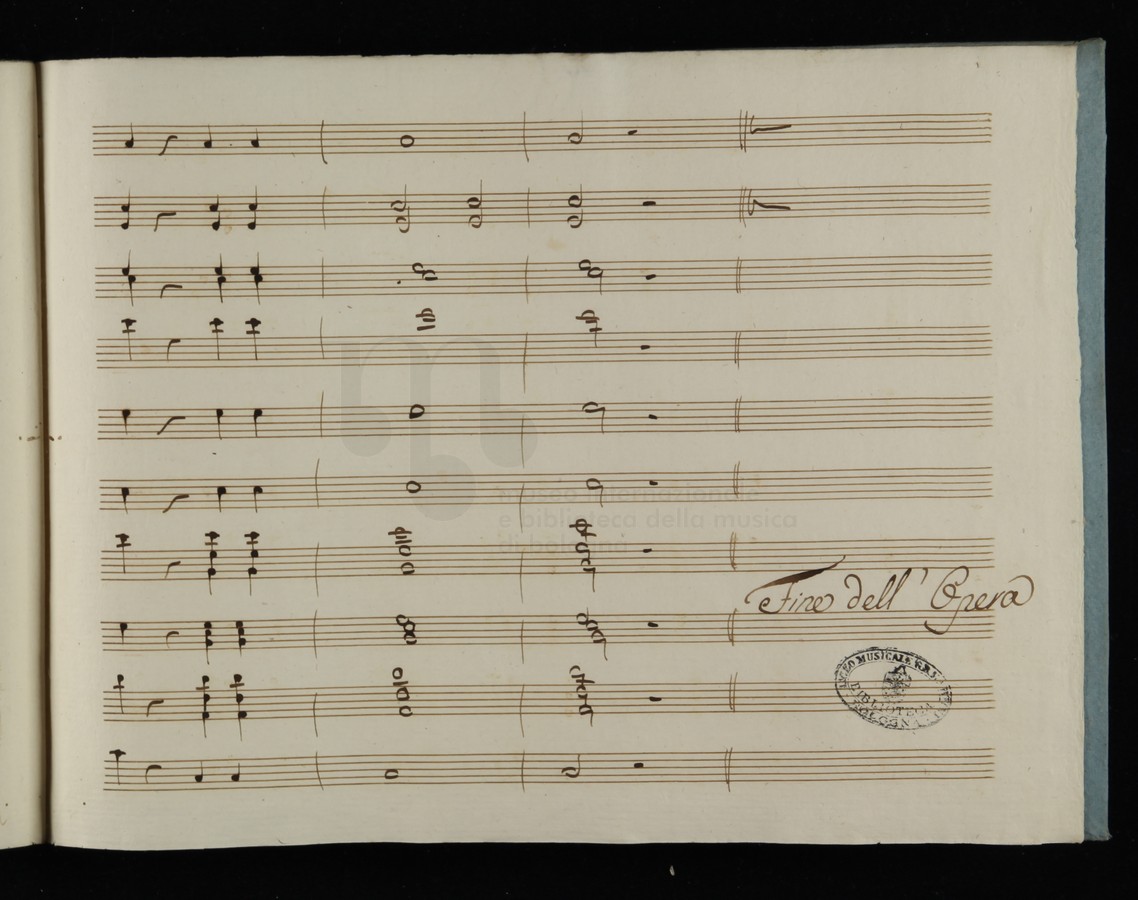 museo internazionale
e biblioteca della musica
di bologna
Fine dell' Opera
LICEO MUSICALE
BIBLIOTECA
BOLOGNA